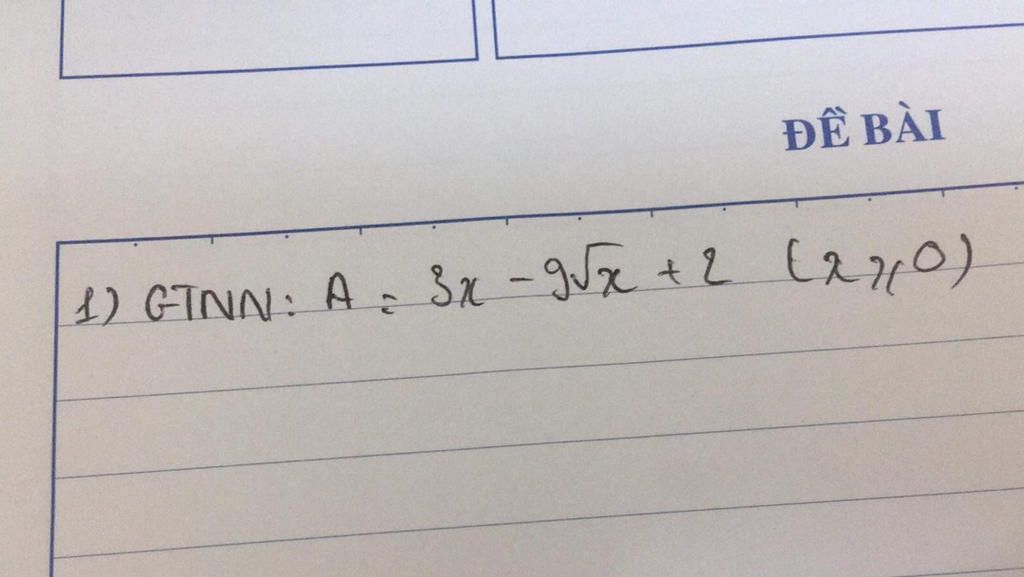 ĐỀ BÀI
1) GTNN: A = 3x - 9√x + 2 (x ⩾ 0)